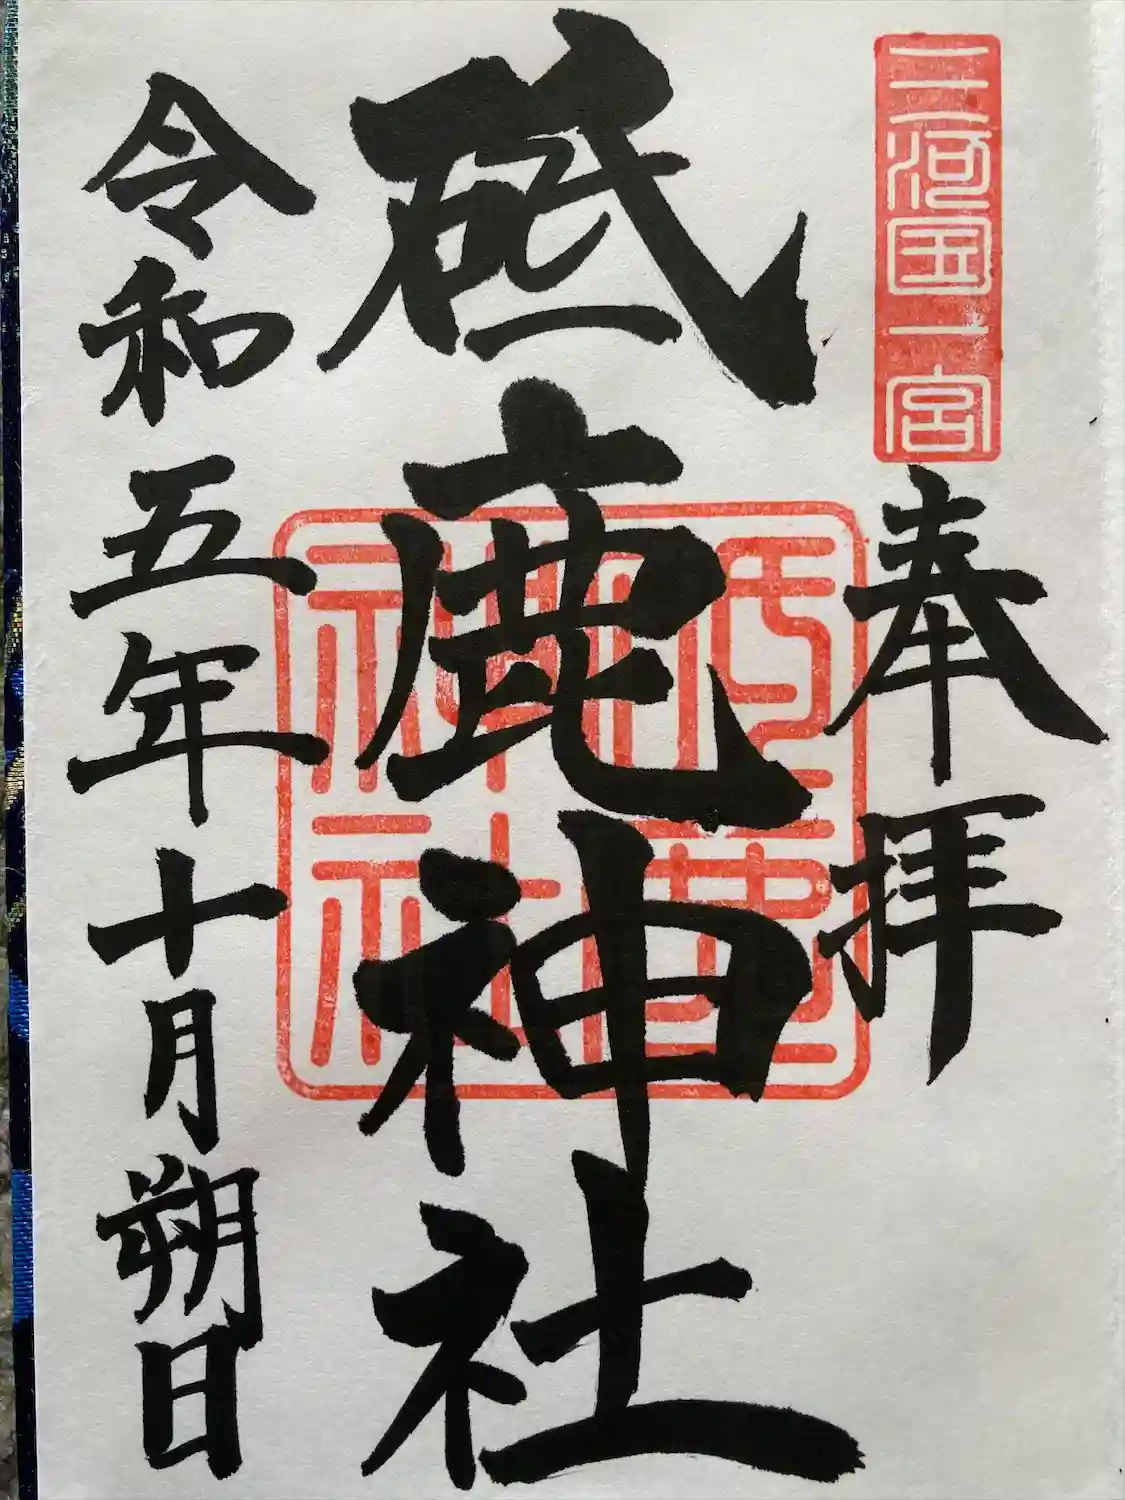 三河国一宮
奉拝
砥鹿神社
砥鹿神社
令和五年十月朔日